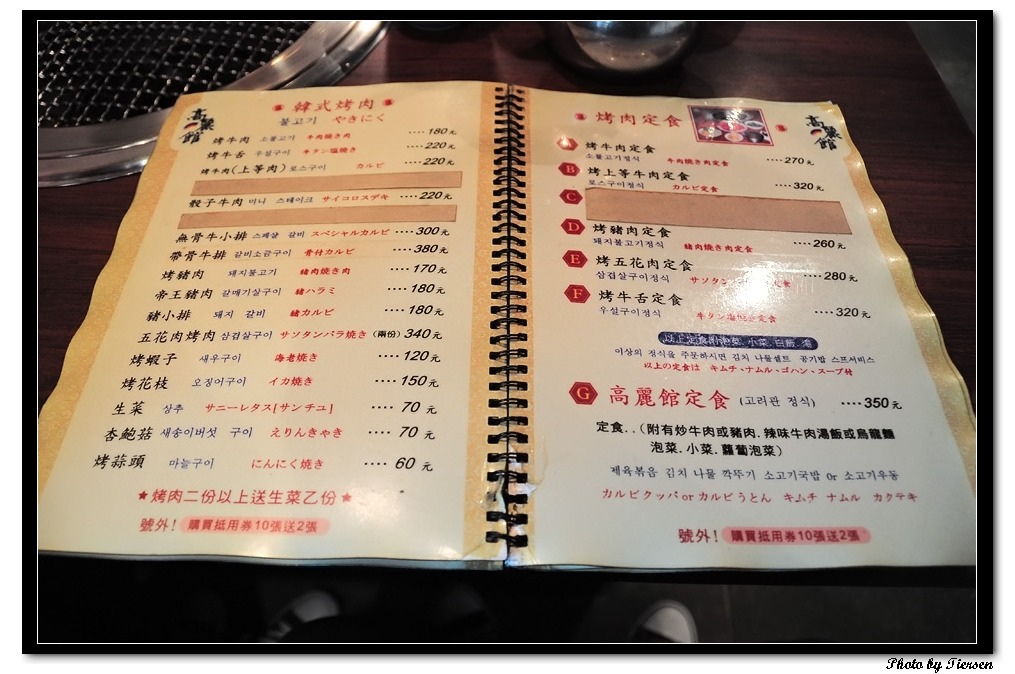 高麗館
韓式烤肉
불고기 やきにく
烤牛肉 소불고기 牛肉焼き肉 ····180元
烤牛舌 우설구이 キタン塩焼き ····220元
烤牛肉(上等肉) 로스구이 カルビ ····220元
骰子牛肉 미니 스테이크 サイコロスデキ ····220元
無骨牛小排 스페샬 갈비 スペシャルカルビ ····300元
帶骨牛排 갈비소금구이 骨付カルビ ····380元
烤豬肉 돼지불고기 豬肉焼き肉 ····170元
帝王豬肉 갈매기살구이 豬ハラミ ····180元
豬小排 돼지 갈비 豬カルビ ····180元
五花肉烤肉 삼겹살구이 サソタンバラ焼き (兩份) 340元
烤蝦子 새우구이 海老焼き ····120元
烤花枝 오징어구이 イカ焼き ····150元
生菜 상추 サニーレタス[サンチユ] ···· 70 元
杏鮑菇 새송이버섯 구이 えりんきゃき ···· 70 元
烤蒜頭 마늘구이 にんにく焼き ···· 60 元
★烤肉二份以上送生菜乙份★
號外! 購買抵用券10張送2張
烤肉定食
高麗館
A 烤牛肉定食
소불고기정식 牛肉焼き肉定食 ····270元
B 烤上等牛肉定食
로스구이정식 カルビ定食 ····320元
C
D 烤豬肉定食
돼지불고기정식 豬肉焼き肉定食 ····260元
E 烤五花肉定食
삼겹살구이정식 サソタン 定食 ····280元
F 烤牛舌定食
우설구이정식 牛タン塩焼き定食 ····320元
以上定食附泡菜. 小菜. 白飯. 湯
이상의 정식을 주문하시면 김치 나물셀트 공기밥 스프서비스
以上の定食は キムチ、ナムル、ゴハン、スープ付
G 高麗館定食 (고려관 정식) ····350元
定食..(附有炒牛肉或豬肉. 辣味牛肉湯飯或烏龍麵
泡菜. 小菜. 蘿蔔泡菜)
제육볶음 김치 나물 깍뚜기 소고기국밥 or 소고기우동
カルビクッパorカルビうとん キムチ ナムル カクテキ
號外! 購買抵用券10張送2張
Photo by Tiersen